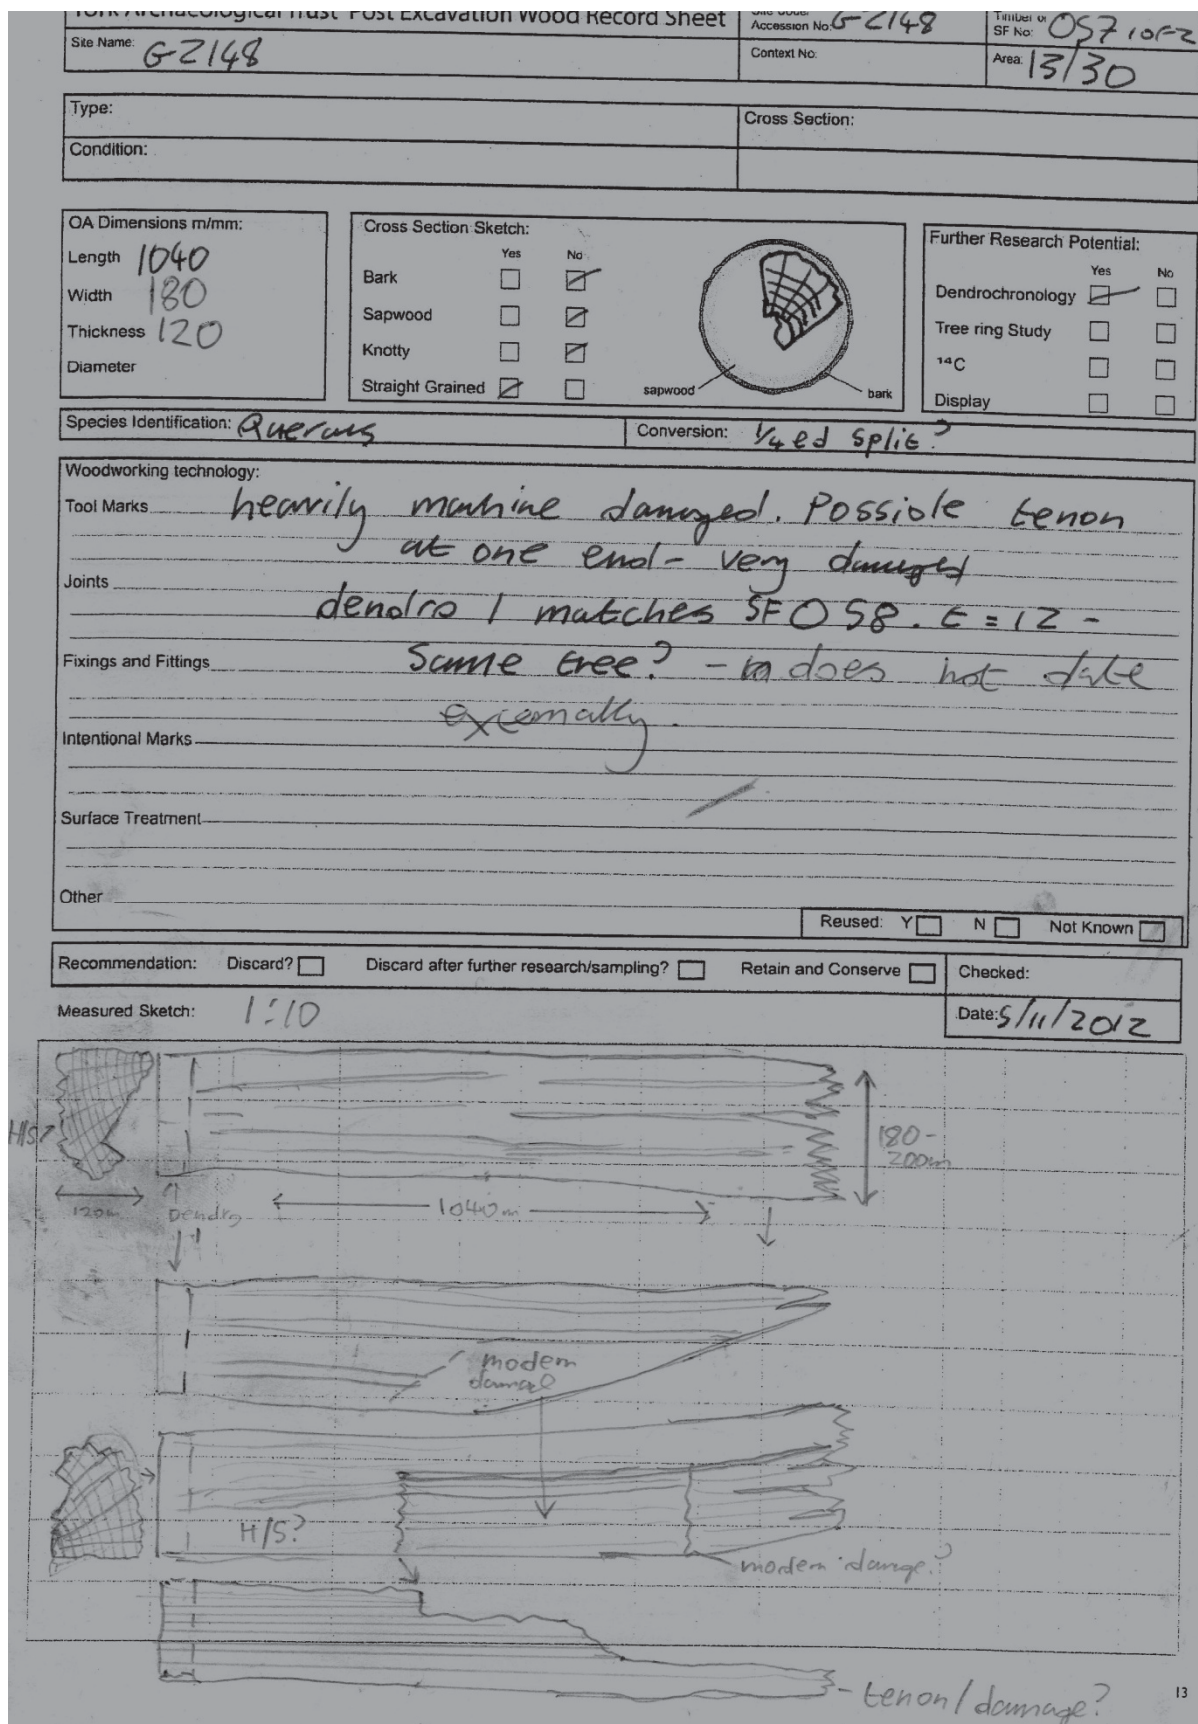 York Archaeological Trust Post Excavation Wood Record Sheet
Accession No: GZ148
Timber or SF No: 057 1 of 2
Site Name: GZ148
Context No:
Area: 13/30
Type:
Cross Section:
Condition:
OA Dimensions m/mm:
Length 1040
Width 180
Thickness 120
Diameter
Cross Section Sketch:
Yes No
Bark
Sapwood
Knotty
Straight Grained
sapwood
bark
Further Research Potential:
Yes No
Dendrochronology
Tree ring Study
¹⁴C
Display
Species Identification: Quercus
Conversion: 1/4 ed split?
Woodworking technology:
Tool Marks heavily machine damaged. Possible tenon
at one end - very damaged
Joints
dendro 1 matches SF058. t = 12 -
Fixings and Fittings same tree? - does not date
externally.
Intentional Marks
Surface Treatment
Other
Reused: Y N Not Known
Recommendation: Discard? Discard after further research/sampling? Retain and Conserve
Checked:
Measured Sketch: 1:10
Date: 5/11/2012
H/S?
180 -
200m
120m
Dendro
1
1040m
modern
damage
H/S?
modern damage?
- tenon/damage?
13